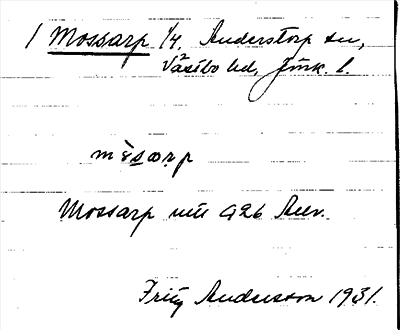 1 Mossarp 1/4 Anderstorp sn,
Västbo hd, Jönk. l.
Mossarp 926 Anv.
Fritz Andersson 1931.